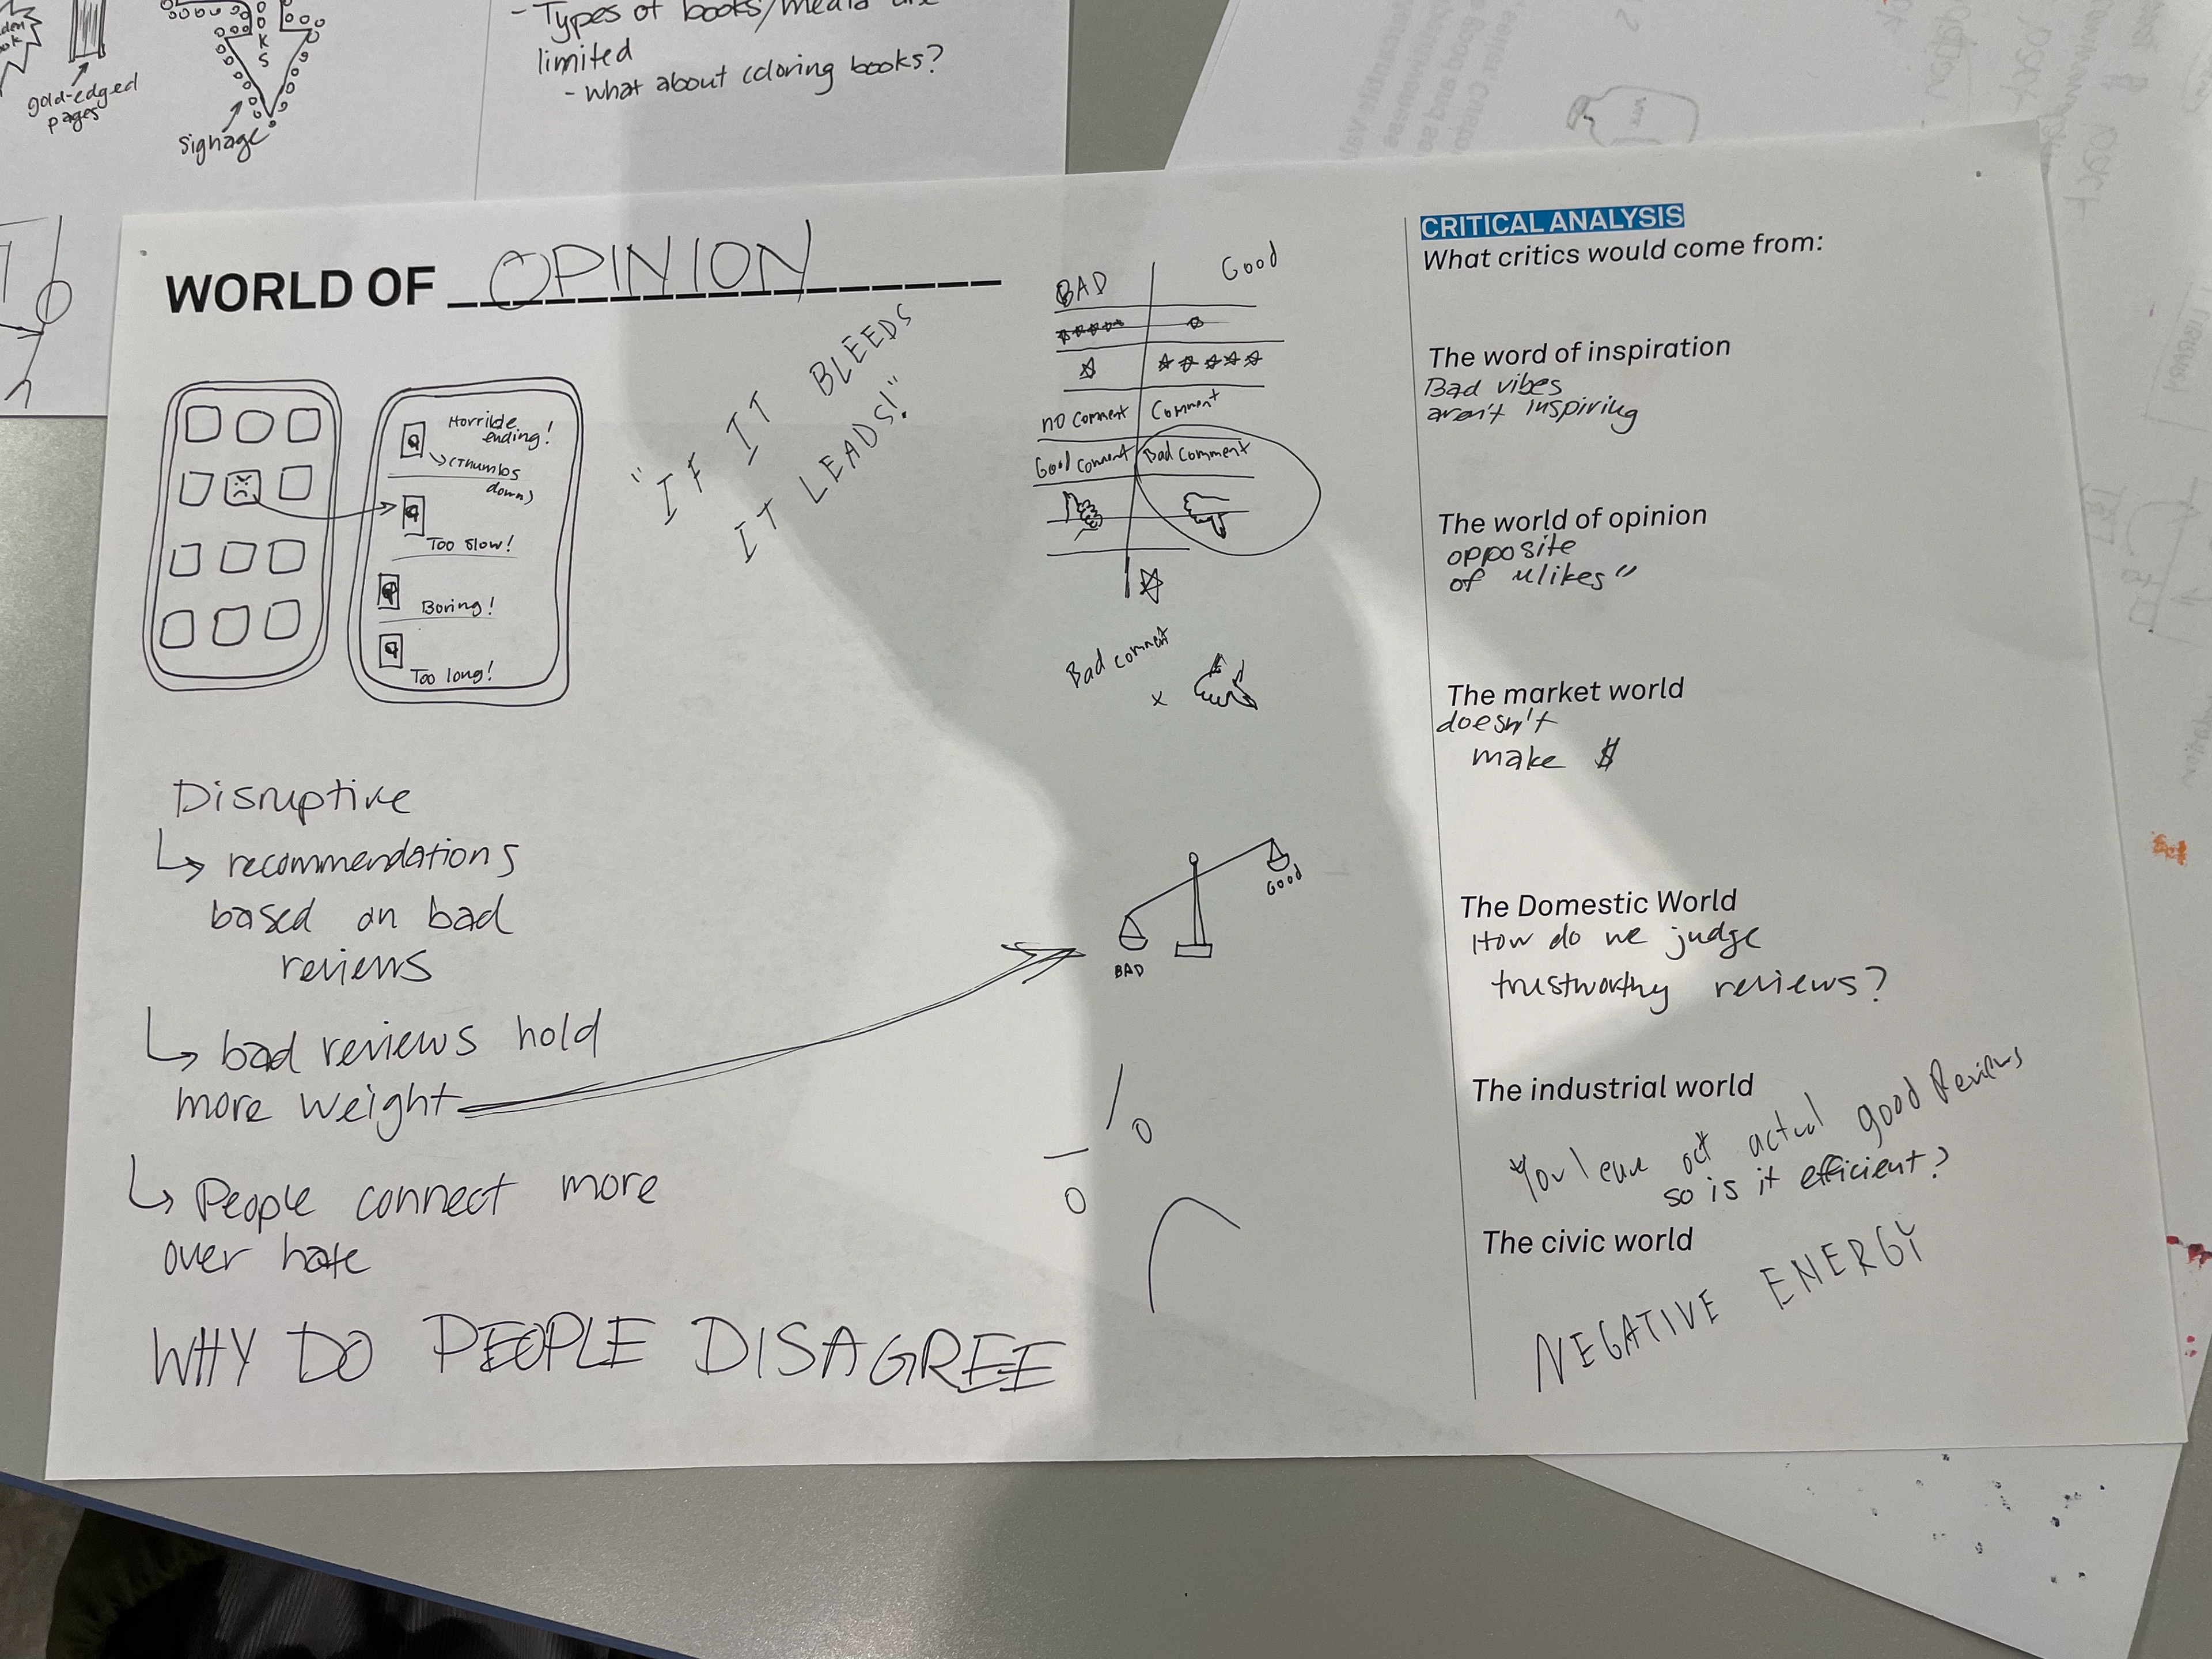 gold-edged
pages
K
S
signage
- Types of books/media are
limited
- What about coloring books?
WORLD OF OPINION
"IF IT BLEEDS
IT LEADS!"
Horrible
ending!
(thumbs
down)
Too slow!
Boring!
Too long!
BAD Good
no comment Comment
Good comment Bad comment
Bad comment
x
Disruptive
recommendations
based on bad
reviews
bad reviews hold
more weight
People connect more
over hate
WHY DO PEOPLE DISAGREE
GOOD
BAD
CRITICAL ANALYSIS
What critics would come from:
The word of inspiration
Bad vibes
aren't inspiring
The world of opinion
opposite
of "likes"
The market world
doesn't
make $
The Domestic World
How do we judge
trustworthy reviews?
The industrial world
You leave out actual good Reviews
so is it efficient?
The civic world
NEGATIVE ENERGY